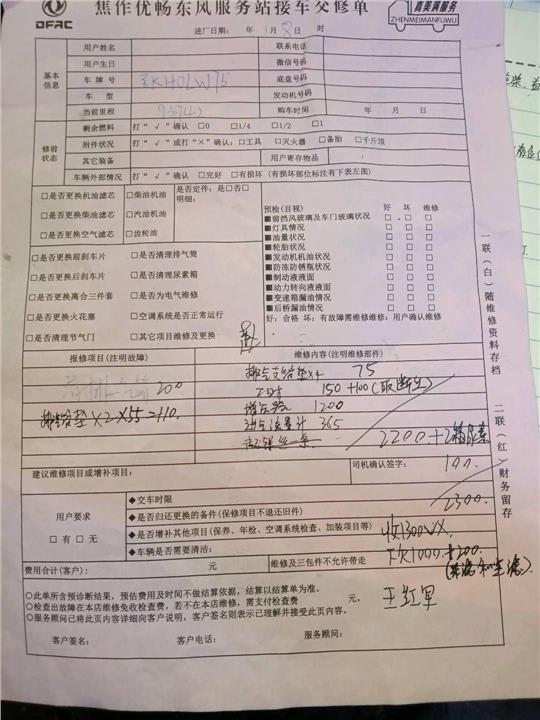 DFAC
焦作优畅东风服务站接车交修单
真美满服务
ZHENMEIMANFUWU
进厂日期： 年 1月8日
基本信息
用户姓名 联系电话
用户生日 微信号码
车牌号 底盘号码
车 型 发动机号码
当前里程 93742 购车时间 年 月 日
修前状态
剩余燃料 打“√”确认 □0 □1/4 □1/2 □1
附件状况 打“√”或打“×”确认：□工具 □灭火器 □备胎 □千斤顶
其它装备 用户寄存物品
车辆外部情况 打“√”确认 □完好 □有损坏（有损坏部位标注有下表左图）
□是否更换机油滤芯 □柴油机油
□是否更换柴油滤芯 □汽油机油
□是否更换空气滤芯 □齿轮油
是否定件：是□否□
明细：
□是否更换前刹车片 □是否清理排气筒
□是否更换后刹车片 □是否清理尿素箱
□是否更换离合三件套 □是否为电气维修
□是否更换火花塞 □空调系统是否正常运行
□是否清理节气门 □其它项目维修及更换
预检(目视) 好 坏 维修
■前挡风玻璃及车门玻璃状况 □ □ □
■灯具情况 □ □ □
■油量状况 □ □ □
■轮胎状况 □ □ □
■发动机机油状况 □ □ □
■防冻防锈瓶状况 □ □ □
■制动液液面 □ □ □
■动力转向液液面 □ □ □
■变速箱漏油情况 □ □ □
■后桥漏油情况 □ □ □
好：合格 坏：有故障需维修维修：用户确认维修
报修项目(注明故障) 维修内容(注明维修部件)
200
排气支管垫×4 75
×2×55=110
工时 150+100(取断丝)
增压器 1200
进气流量计 365
2200+2箱尿素
建议维修项目或增补项目：
司机确认签字： 100.
2300.
用户要求
□有 □无
◆交车时限
◆是否归还更换的备件(保修项目不退还旧件)
◆是否增补其他项目(保养、年检、空调系统检查、加装项目等)
◆车辆是否需要清洁：
收1300
下欠1000+200
费用合计(客户)： 元 维修及三包件不允许带走
○此单所含预诊断结果，预估费用及时间不做结算依据，结算以结算单为准。
○检查出故障在本店维修免收检查费，若不在本店维修，需支付检查费 元。
○服务顾问已将此页内容详细向客户说明，客户签名则表示已理解并接受此页内容。
王红军
客户签名： 客户电话： 服务顾问：
一联（白）随维修资料存档
二联（红）财务留存